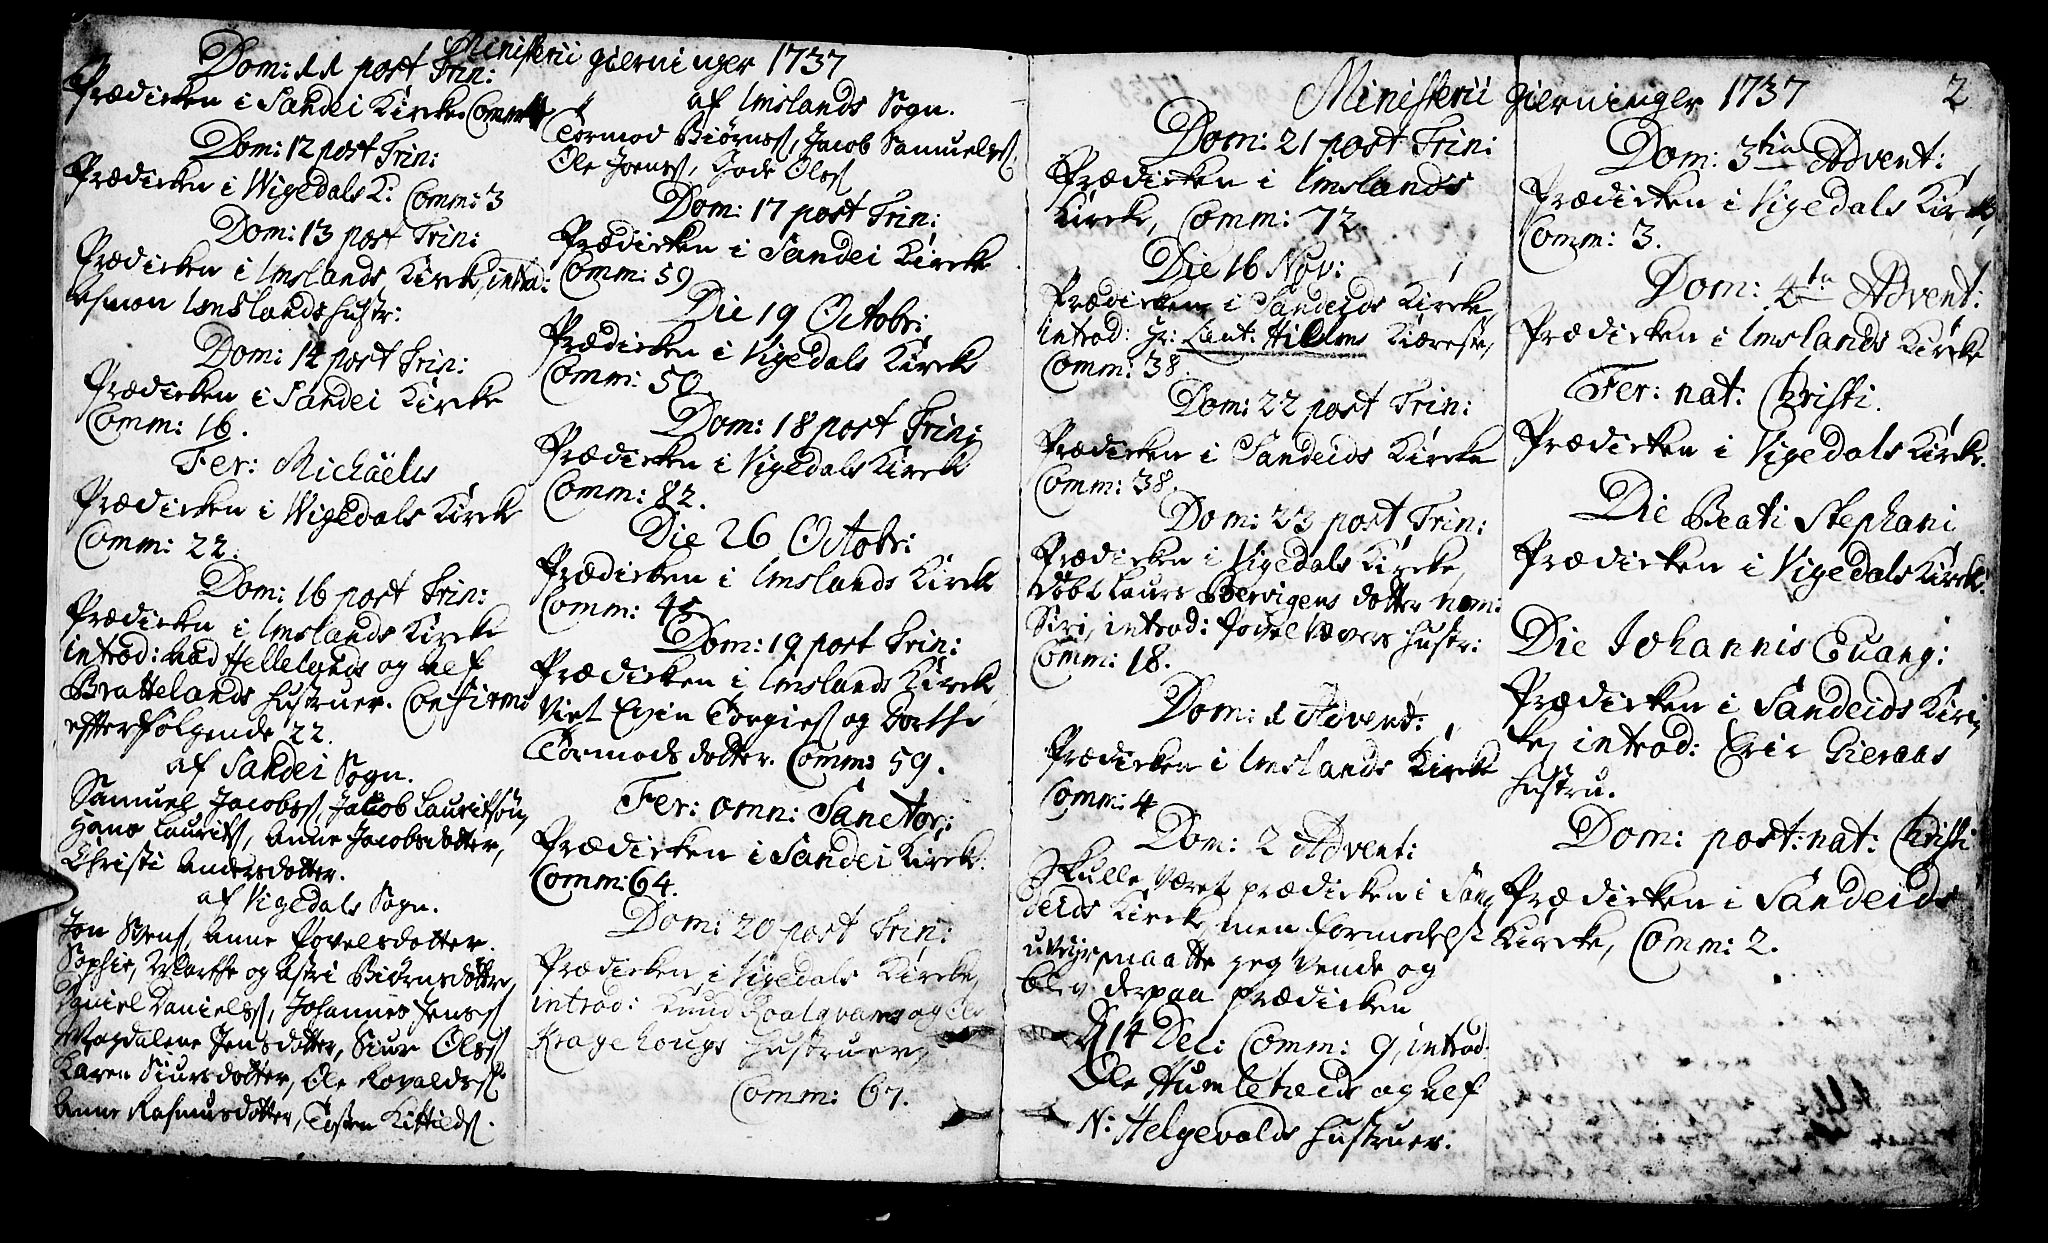 Ministerii gierninger 1737
Dom: 11 post Trin:
Prædicken i Sandei Kircke Comm
Dom: 12 post Trin:
Prædicken i Wigedals K: Comm: 3
Dom: 13 post Trin:
Prædicken i Imslands Kircke, introd:
Asmon Imslands hustr:
Dom: 14 post Trin:
Prædicken i Sandei Kircke
Comm: 16.
Fer: Michaëlis
Prædicken i Wigedals Kircke
Comm: 22.
Dom: 16 post Trin:
Prædicken i Imslands Kircke
introd: Hellelands og Leif
Brattelands hustruer. Confirm:
efterfølgende 22.
af Sandei Sogn.
Samuel Jacobss, Jacob Lauritsøn,
Hans Laurits, Anne Jacobsdotter,
Christi Andersdotter.
af Vigedals Sogn.
Jon Svens, Anne Povelsdotter.
Sophie, Marthe og Astri Biørnsdøttre,
Daniel Daniels, Johannes Jens
Magdalene Jensdotter, Siur Ols
Karen Siursdotter, Ole Rovalds
Anne Rasmusdotter, Tosten Kittilds.
af Imslands Sogn.
Tormod Biørns, Jacob Samuels,
Ole Joens, Ols
Dom: 17 post Trin:
Prædicken i Sandei Kircke
Comm: 59
Die 19 Octobr:
Prædicken i Vigedals Kircke
Comm: 50
Dom: 18 post Trin:
Prædicken i Vigedals Kircke
Comm: 82.
Die 26 Octobr:
Prædicken i Imslands Kircke
Comm: 45
Dom: 19 post Trin:
Prædicken i Imslands Kircke
Viet Torgies og Dorthe
Tormods dotter. Comm: 59.
Fer: omn: Sanctor:
Prædicken i Sandei Kircke.
Comm: 64.
Dom: 20 post Trin:
Prædicken i Vigedals Kircke,
introd: Knud Roalqvams og
Kragehougs hustruer,
Comm: 67.
Ministerii gierninger 1737 2
Dom: 21 post Trin:
Prædicken i Imslands
Kircke, Comm: 72
Die 16 Nov:
Prædicken i Sandeids Kircke,
introd: Hr: Kiæreste,
Comm: 38.
Dom: 22 post Trin:
Prædicken i Sandeids Kircke
Comm: 38.
Dom: 23 post Trin:
Prædicken i Vigedals Kircke,
Døbt Laurs Bervigens dotter nom:
Siri, introd: hustr:
Comm: 18.
Dom: 1 Advent:
Prædicken i Imslands Kircke
Comm: 4
Dom: 2 Advent:
Skulle været prædicken i San
deids Kircke, men formedelst
uveyr maatte jeg vende og
blev derpaa prædicken
d 14 Dec: Comm: 9, introd:
Ole Humleheids og Leif
N: Helgevolds hustruer.
Dom: 3tia Advent:
Prædicken i Vigedals Kircke,
Comm: 3.
Dom: 4ta Advent:
Prædicken i Imslands Kircke
Fer: nat: Christi.
Prædicken i Vigedals Kircke.
Die Beati Stephani
Prædicken i Vigedals Kircke.
Die Johannis Euang:
Prædicken i Sandeids Kirc
ke, introd: Eric Gieraas
hustru.
Dom: post: nat: Christi
Prædicken i Sandeids
Kircke, Comm: 2.